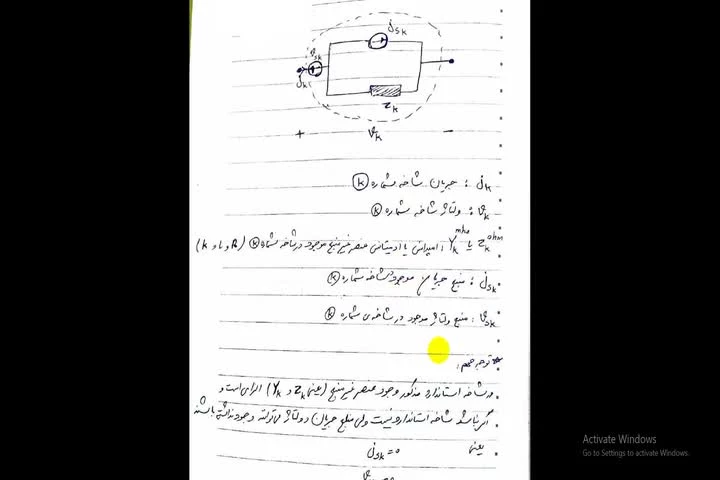 j_sk
v_sk
j_k
z_k
+ v_k −
j_k : جریان شاخه شماره k
v_k : ولتاژ شاخه شماره k
z_k^ohm یا Y_k^mho : امپدانس یا ادمیتانس عنصر غیر منبع موجود در شاخه شماره k (R و L و
j_sk : منبع جریان موجود در شاخه شماره k
v_sk : منبع ولتاژ موجود در شاخه‌ی شماره k
توجه مهم :
در شاخه استاندارد مذکور وجود عنصر غیر منبع (یعنی z_k و Y_k) الزامی است و
اگر نباشد شاخه استاندارد نیست ولی منابع جریان و ولتاژ می‌تواند وجود نداشته باشند
یعنی j_sk = 0
Activate Windows
Go to Settings to activate Windows.